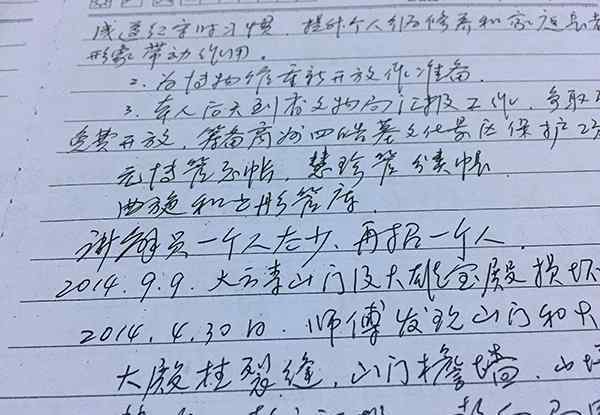 成遵纪守时习惯，提升个人组织修养和家庭
形象带动作用。
2. 为博物馆重新开放作准备。
3. 本人后天到省文物局汇报工作，争取
免费开放，筹备商州四皓墓文化景区保护
云博管总帐，慧珍管分类帐
曲旋和文彤管库。
讲解员一个人太少、再招一个人。
2014.9.9. 大云寺山门及大雄宝殿损坏
2014.4.30日. 师傅发现山门和大
大殿柱裂缝，山门檐墙，山墙